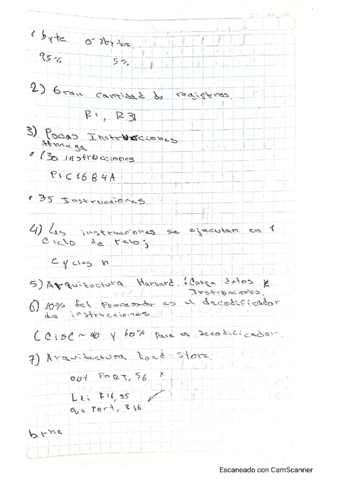 1 byte o 2bytes.
95% 5%
2) Gran cantidad de registros
R1, R31
3) Pocas Instrucciones
Atmega
• 130 instrucciones
PIC16F84A
• 35 Instrucciones
4) Las instrucciones se ejecutan en 1
Ciclo de reloj
Cycles n
5) Arquitectura Harvard: Carga datos
Instrucciones
6) 10% del Procesador es el decodificador
de instrucciones
(CISC ~ y 60% para decodificador
7) Arquitectura Load-Store
out Port, 56 x
Ldi R16, 55
out Port, R16
brne
Escaneado con CamScanner